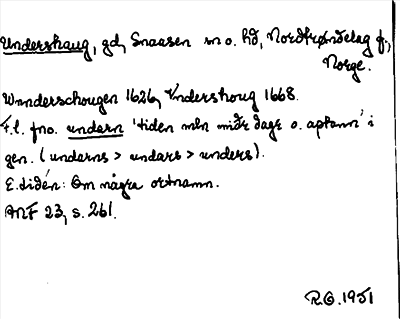 Undershaug, gd, Snaasen sn o. hd, Nordtrøndelag f.,
Norge.
Wnderschougen 1626, Vndershoug 1668.
F.l. fno. undarn 'tiden mln midr dage o. aptann' i
gen. (undarns > undars > unders).
E. Lidén: Om några ortnamn.
ANF 23, s. 261.
R.O. 1951